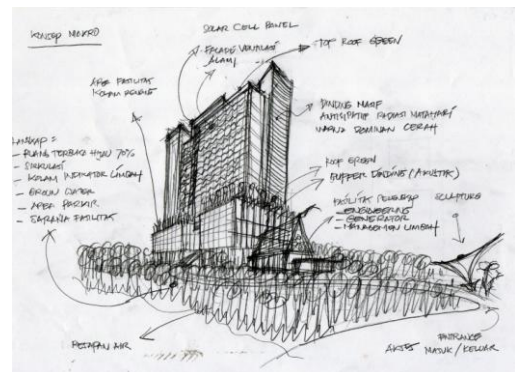 KONSEP MAKRO
SOLAR CELL PANEL
- FACADE VENTILASI
ALAMI
TOP ROOF GREEN
AREA FASILITAS
KOLAM RENANG
DINDING MASIF
ANTISIPATIF RADIASI MATAHARI
WARNA DOMINAN CERAH
LANSKAP =
- RUANG TERBUKA HIJAU 70%
- SIRKULASI
- KOLAM INDIKATOR LIMBAH
- GROUN WATER
- AREA PARKIR
- SARANA FASILITAS
ROOF GREEN
BUFFER DINDING (AKUSTIK)
FASILITAS PENUNJANG SCULPTURE
- ENGINEERING
- GENERATOR
- MANAGEMEN LIMBAH
RESAPAN AIR
ENTRANCE
AKSES MASUK / KELUAR